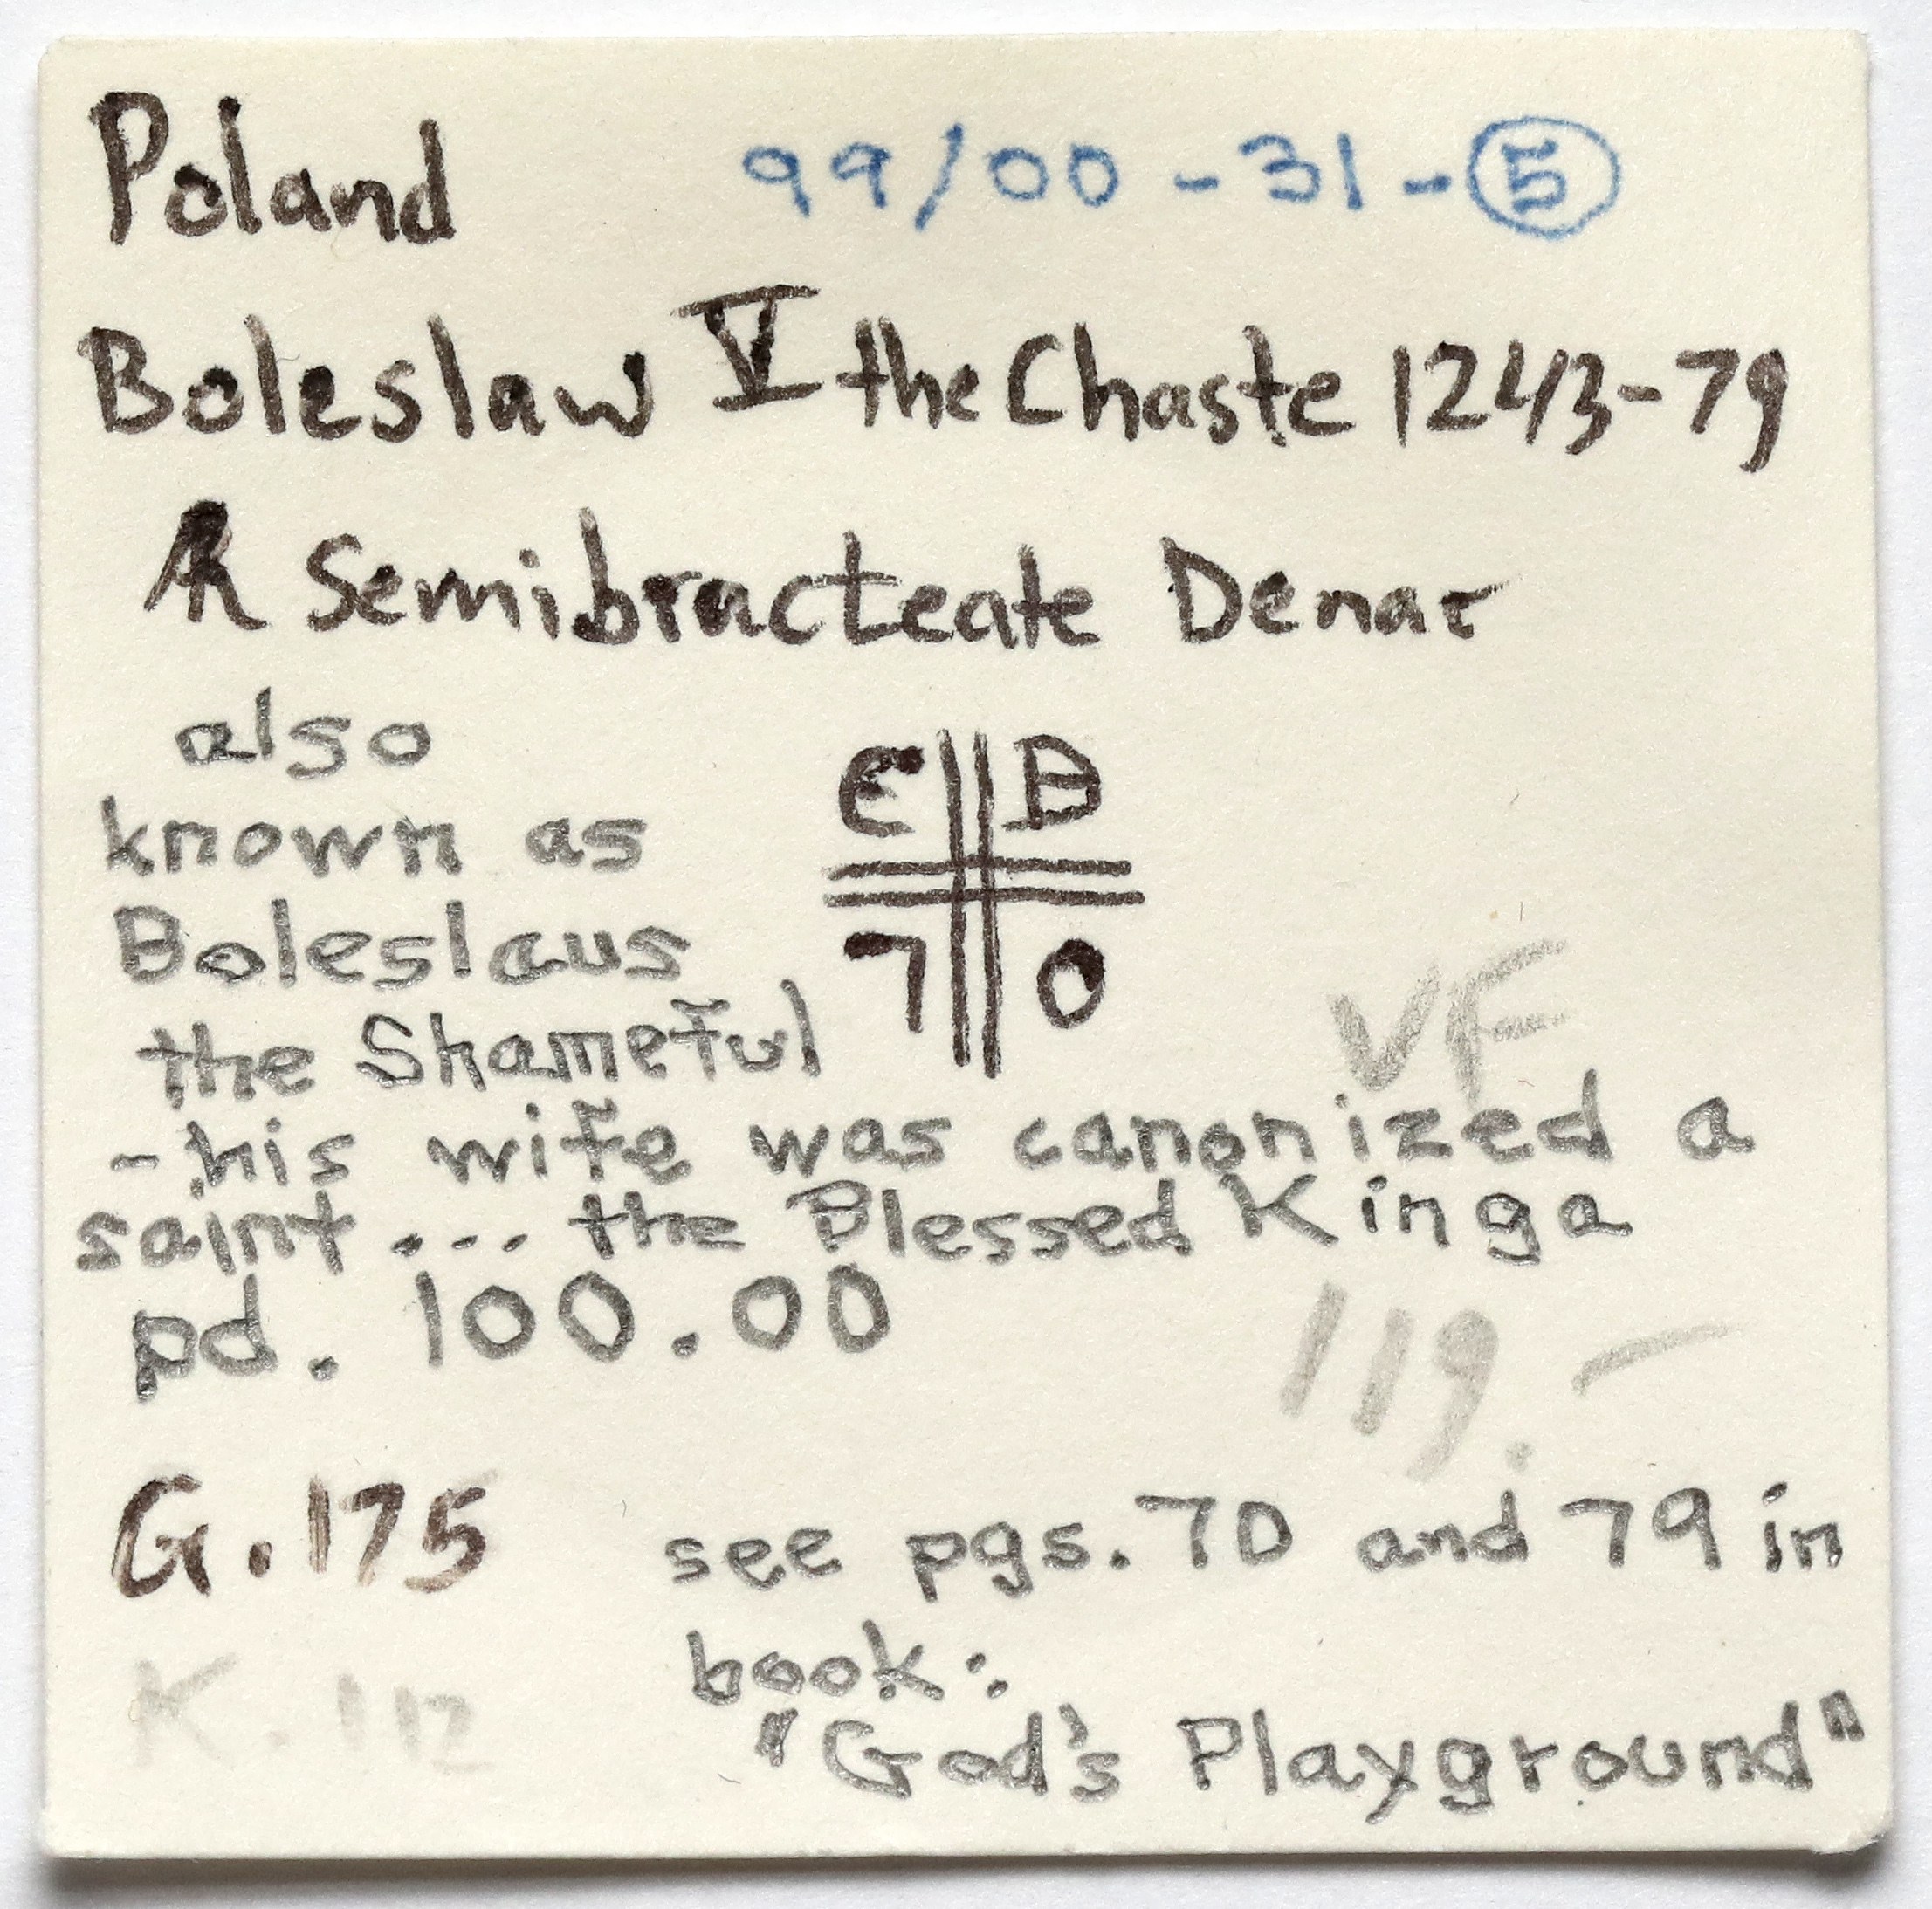 Poland 99/00-31-⑤
Boleslaw V the Chaste 1243-79
AR Semibracteate Denar
also
known as
Boleslaus
the Shameful
C B
7 0
VF
-his wife was canonized a
saint ... the Blessed Kinga
pd. 100.00
119.-
G.175
see pgs. 70 and 79 in
K.112
book:
"God's Playground"